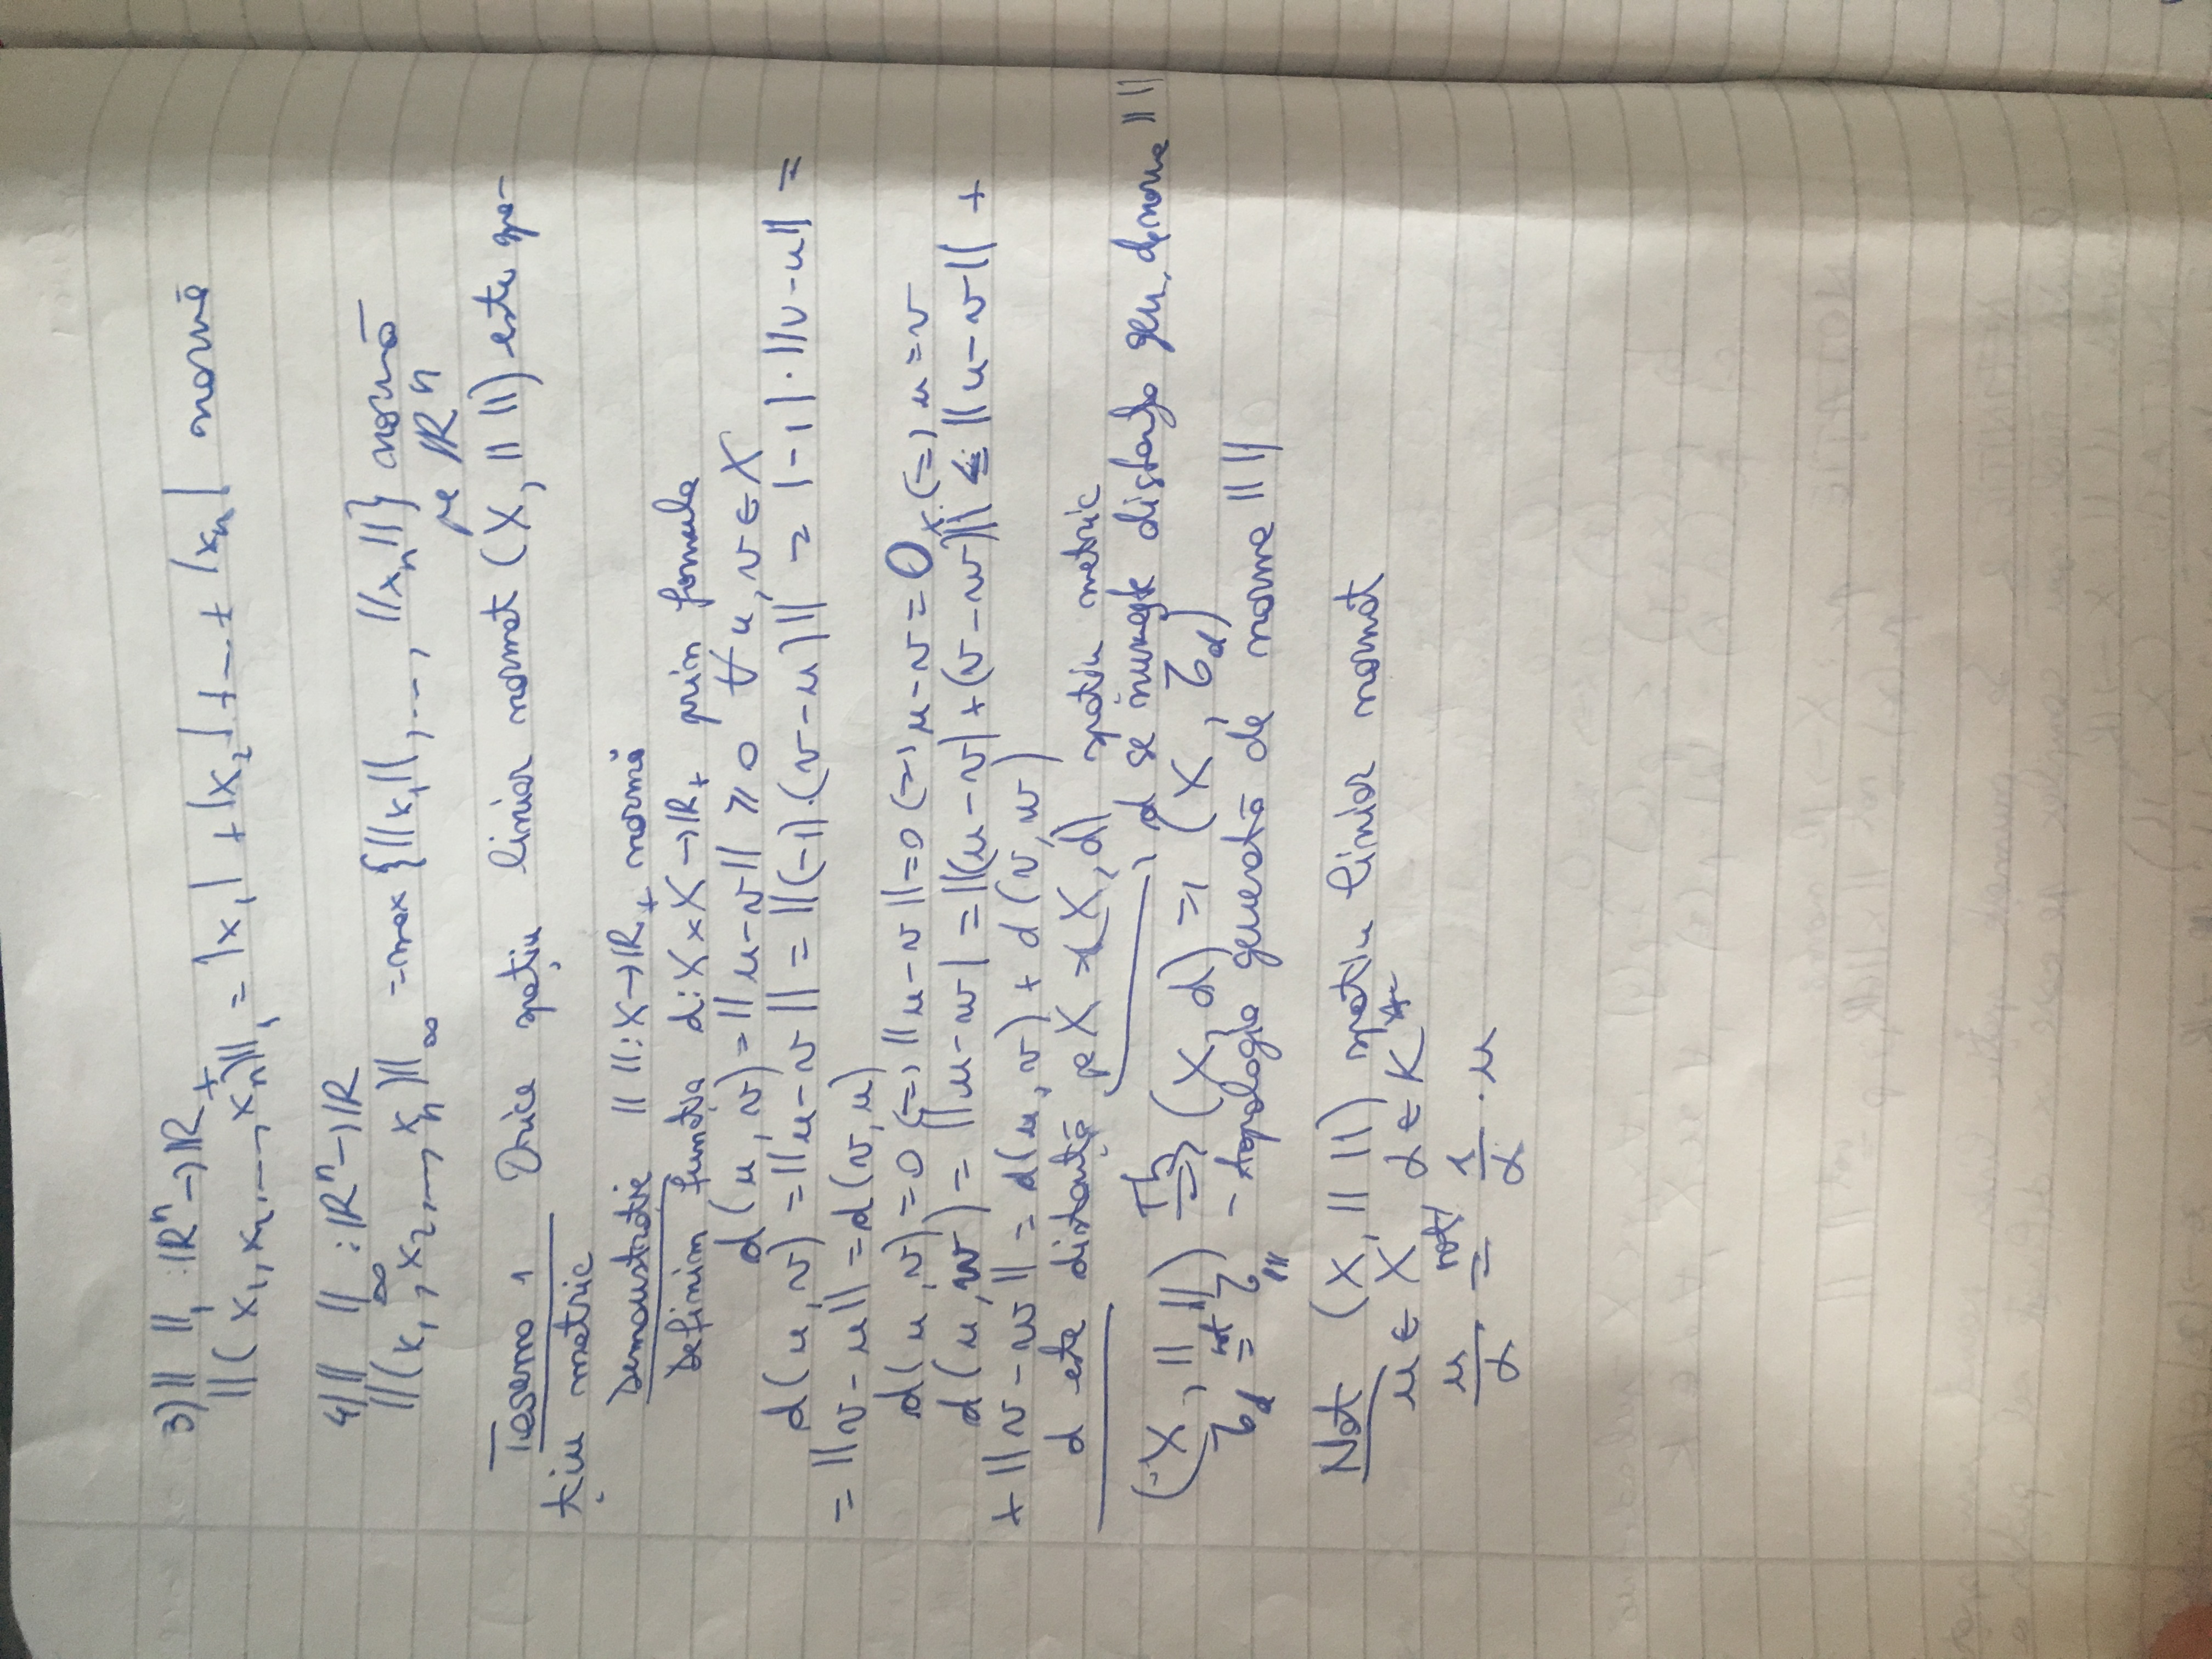 3) || ||₁ : ℝⁿ → ℝ₊
||(x₁, x₂, ..., xₙ)||₁ = |x₁| + |x₂| + ... + |xₙ| normă
4) || ||∞ : ℝⁿ → ℝ
||(x₁, x₂, ..., xₙ)||∞ = max {||x₁||, ..., ||xₙ||} normă
pe ℝⁿ
Teorema 1 Orice spațiu liniar normat (X, || ||) este spa-
țiu metric
Demonstrație || || : X → ℝ₊ normă
Definim funcția d : X × X → ℝ₊ prin formula
d(u, v) = ||u - v|| ≥ 0 ∀ u, v ∈ X
d(u, v) = ||u - v|| = ||(-1)·(v - u)|| = |-1|·||v - u|| =
= ||v - u|| = d(v, u)
d(u, v) = 0 (=) ||u - v|| = 0 (=) u - v = 0ₓ (=) u = v
d(u, w) = ||u - w| = ||(u - v) + (v - w)|| ≤ ||u - v|| +
+ ||v - w|| = d(u, v) + d(v, w)
d este distanță pe X (X, d) spațiu metric
d se numește distanța gen. de norma || ||
(X, || ||) Th ⇒ (X, d) => (X, τ_d)
τ_d not= τ_|| || - topologia generată de norma || ||
Not (X, || ||) spațiu liniar normat
u ∈ X, α ∈ K*
u/α not= 1/α · u